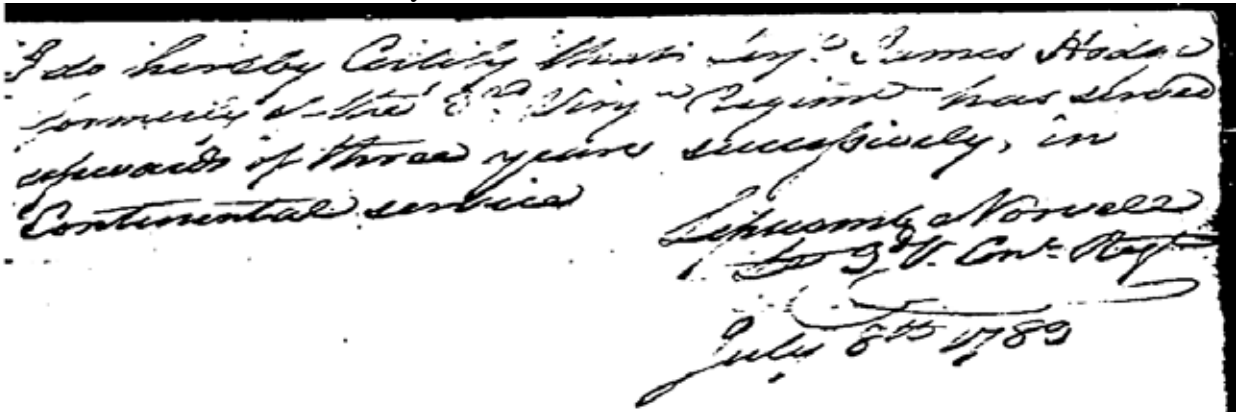 I do hereby Certify that Serjt. James Hodge
formerly of the Virga Regimt has served
upwards of three years successively, in
Continental service
Lipscomb Norvell
Lt 3d V. Cont. Regt
July 8th 1783